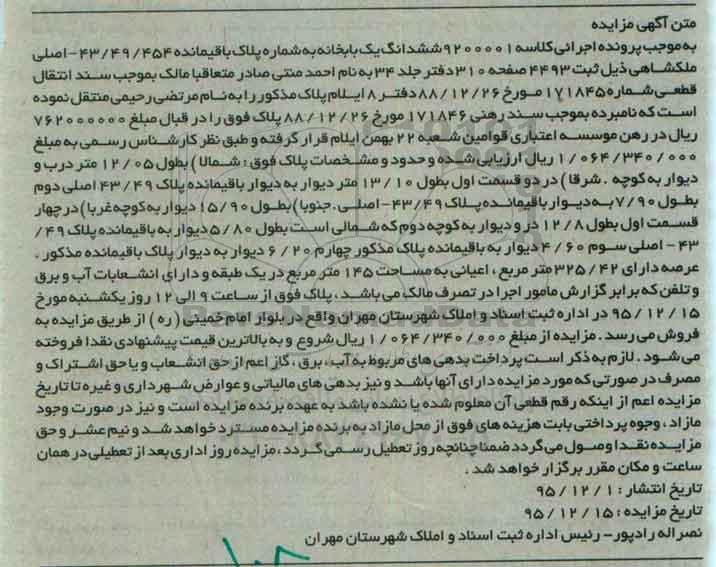 متن آگهی مزایده
به موجب پرونده اجرائی کلاسه ۹۲۰۰۰۰۱ ششدانگ یک بابخانه به شماره پلاک باقیمانده ۴۳/۴۹/۴۵۴ - اصلی
ملکشاهی ذیل ثبت ۴۴۹۳ صفحه ۳۱۰ دفتر جلد ۳۴ به نام احمد منتی صادر متعاقبا مالک بموجب سند انتقال
قطعی شماره ۱۷۱۸۴۵ مورخ ۸۸/۱۲/۲۶ دفتر ۸ ایلام پلاک مذکور را به نام مرتضی رحیمی منتقل نموده
است که نامبرده بموجب سند رهنی ۱۷۱۸۴۶ مورخ ۸۸/۱۲/۲۶ پلاک فوق را در قبال مبلغ ۷۶۲۰۰۰۰۰۰
ریال در رهن موسسه اعتباری قوامین شعبه ۲۲ بهمن ایلام قرار گرفته و طبق نظر کارشناس رسمی به مبلغ
۱/۰۶۴/۳۴۰/۰۰۰ ریال ارزیابی شده و حدود و مشخصات پلاک فوق : شمالا ) بطول ۱۲/۰۵ متر درب و
دیوار به کوچه . شرقا ) در دو قسمت اول بطول ۱۳/۱۰ متر دیوار به دیوار باقیمانده پلاک ۴۳/۴۹ اصلی دوم
بطول ۷/۹۰ به دیوار باقیمانده پلاک ۴۳/۴۹ - اصلی . جنوبا ) بطول ۱۵/۹۰ دیوار به کوچه غربا ) در چهار
قسمت اول بطول ۱۲/۸ در و دیوار به کوچه دوم که شمالی است بطول ۵/۸۰ دیوار به باقیمانده پلاک ۴۹/
۴۳ - اصلی سوم ۴/۶۰ دیوار به باقیمانده پلاک مذکور چهارم ۶/۲۰ دیوار به دیوار پلاک باقیمانده مذکور .
عرصه دارای ۳۲۵/۴۲ متر مربع ، اعیانی به مساحت ۱۴۵ متر مربع در یک طبقه و دارای انشعابات آب و برق
و تلفن که برابر گزارش مامور اجرا در تصرف مالک می باشد ، پلاک فوق از ساعت ۹ الی ۱۲ روز یکشنبه مورخ
۹۵/۱۲/۱۵ در اداره ثبت اسناد و املاک شهرستان مهران واقع در بلوار امام خمینی ( ره ) از طریق مزایده به
فروش می رسد . مزایده از مبلغ ۱/۰۶۴/۳۴۰/۰۰۰ ریال شروع و به بالاترین قیمت پیشنهادی نقدا فروخته
می شود . لازم به ذکر است پرداخت بدهی های مربوط به آب ، برق ، گاز اعم از حق انشعاب و یا حق اشتراک و
مصرف در صورتی که مورد مزایده دارای آنها باشد و نیز بدهی های مالیاتی و عوارض شهرداری و غیره تا تاریخ
مزایده اعم از اینکه رقم قطعی آن معلوم شده یا نشده باشد به عهده برنده مزایده است و نیز در صورت وجود
مازاد ، وجوه پرداختی بابت هزینه های فوق از محل مازاد به برنده مزایده مسترد خواهد شد و نیم عشر و حق
مزایده نقدا وصول می گردد ضمنا چنانچه روز تعطیل رسمی گردد ، مزایده روز اداری بعد از تعطیلی در همان
ساعت و مکان مقرر برگزار خواهد شد .
تاریخ انتشار : ۹۵/۱۲/۱
تاریخ مزایده : ۹۵/۱۲/۱۵
نصراله رادپور - رئیس اداره ثبت اسناد و املاک شهرستان مهران